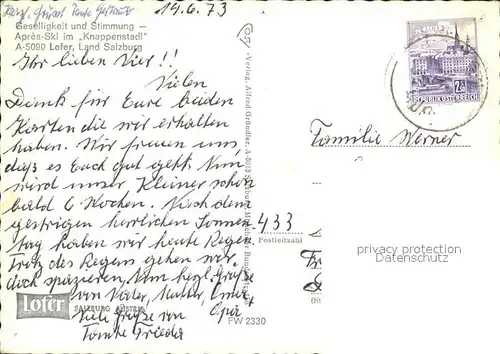 Herzl. Grüße Tante Gertrud
14.6.73
Geselligkeit und Stimmung –
Après-Ski im „Knappenstadl"
A-5090 Lofer, Land Salzburg
Ihr lieben Vier!!
Vielen
Dank für Eure beiden
Karten die wir erhalten
haben. Wir freuen uns,
daß es Euch gut geht. Nun
wird unser Kleiner schon
bald 6 Wochen. Nach dem
gestrigen herrlichen Sonnen
tag haben wir heute Regen.
Trotz des Regens gehen wir
doch spazieren. Nun herzl. Grüße
von Vater, Mutter, Oma,
Opa
Viele Grüße von
Tante Frieda
Lofer
SALZBURG AUSTRIA
FW 2330
Verlag Alfred Gründler, A-5013 Salzburg
REPUBLIK ÖSTERREICH
Familie Werner
433
Postleitzahl
privacy protection
Datenschutz